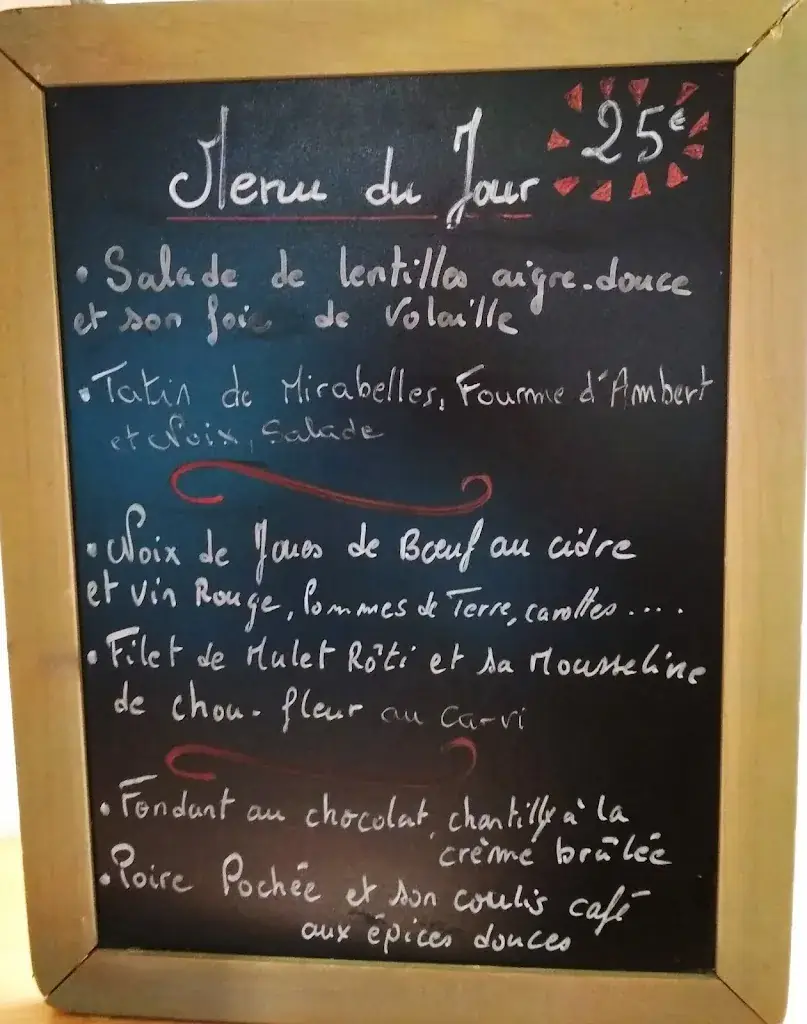 Menu du Jour
25€
• Salade de lentilles aigre-douce
et son foie de Volaille
• Tatin de Mirabelles, Fourme d'Ambert
et Noix, Salade
• Noix de Joues de Bœuf au cidre
et vin Rouge, Pommes de Terre, carottes....
• Filet de Mulet Rôti et sa Mousseline
de chou-fleur au carvi
• Fondant au chocolat, chantilly à la
crème brûlée
• Poire Pochée et son coulis café
aux épices douces